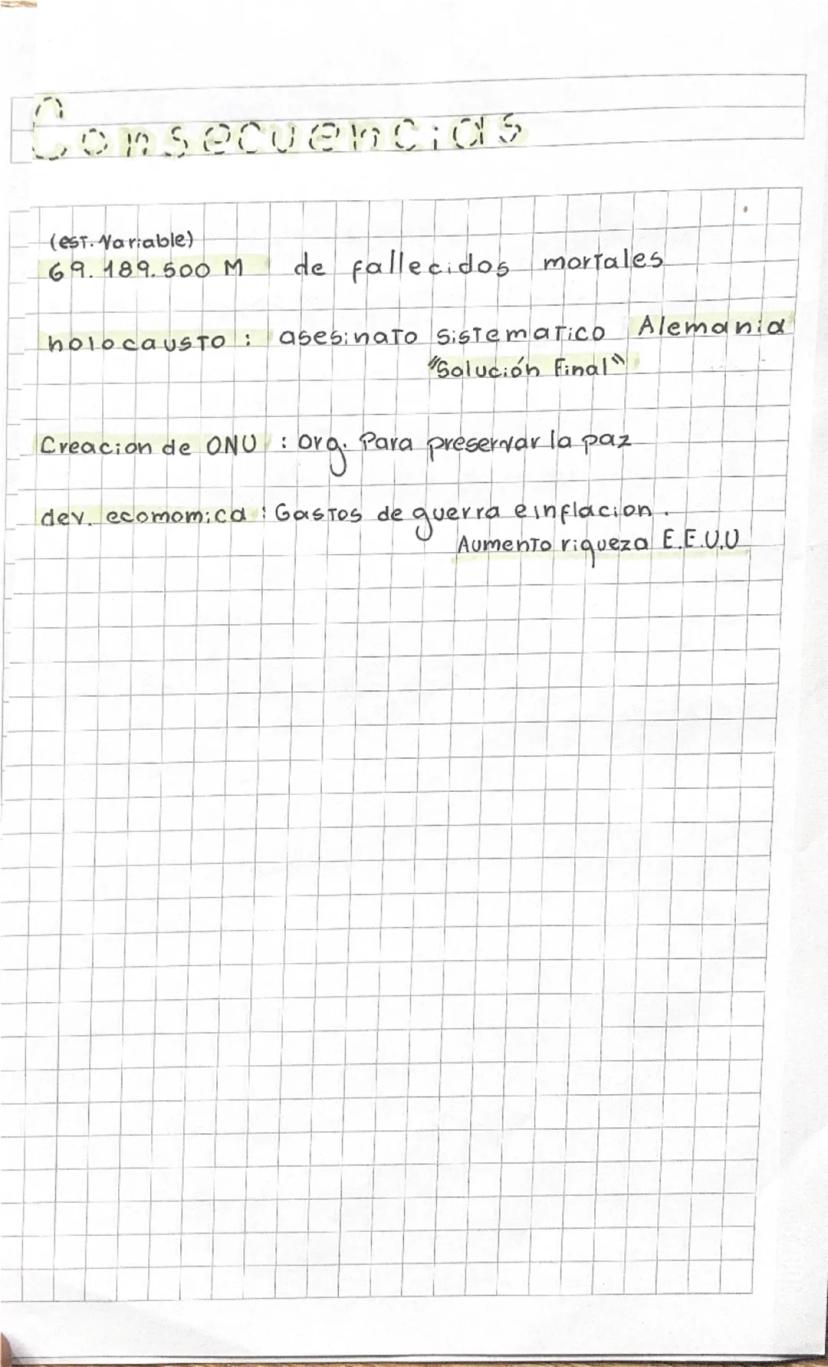 Consecuencias
(est. Variable)
69.189.500 M de fallecidos mortales
holocausto : asesinato sistematico Alemania
"Solución Final"
Creacion de ONU : Org. Para preservar la paz
dev. ecomomica : Gastos de guerra e inflacion.
Aumento riqueza E.E.U.U